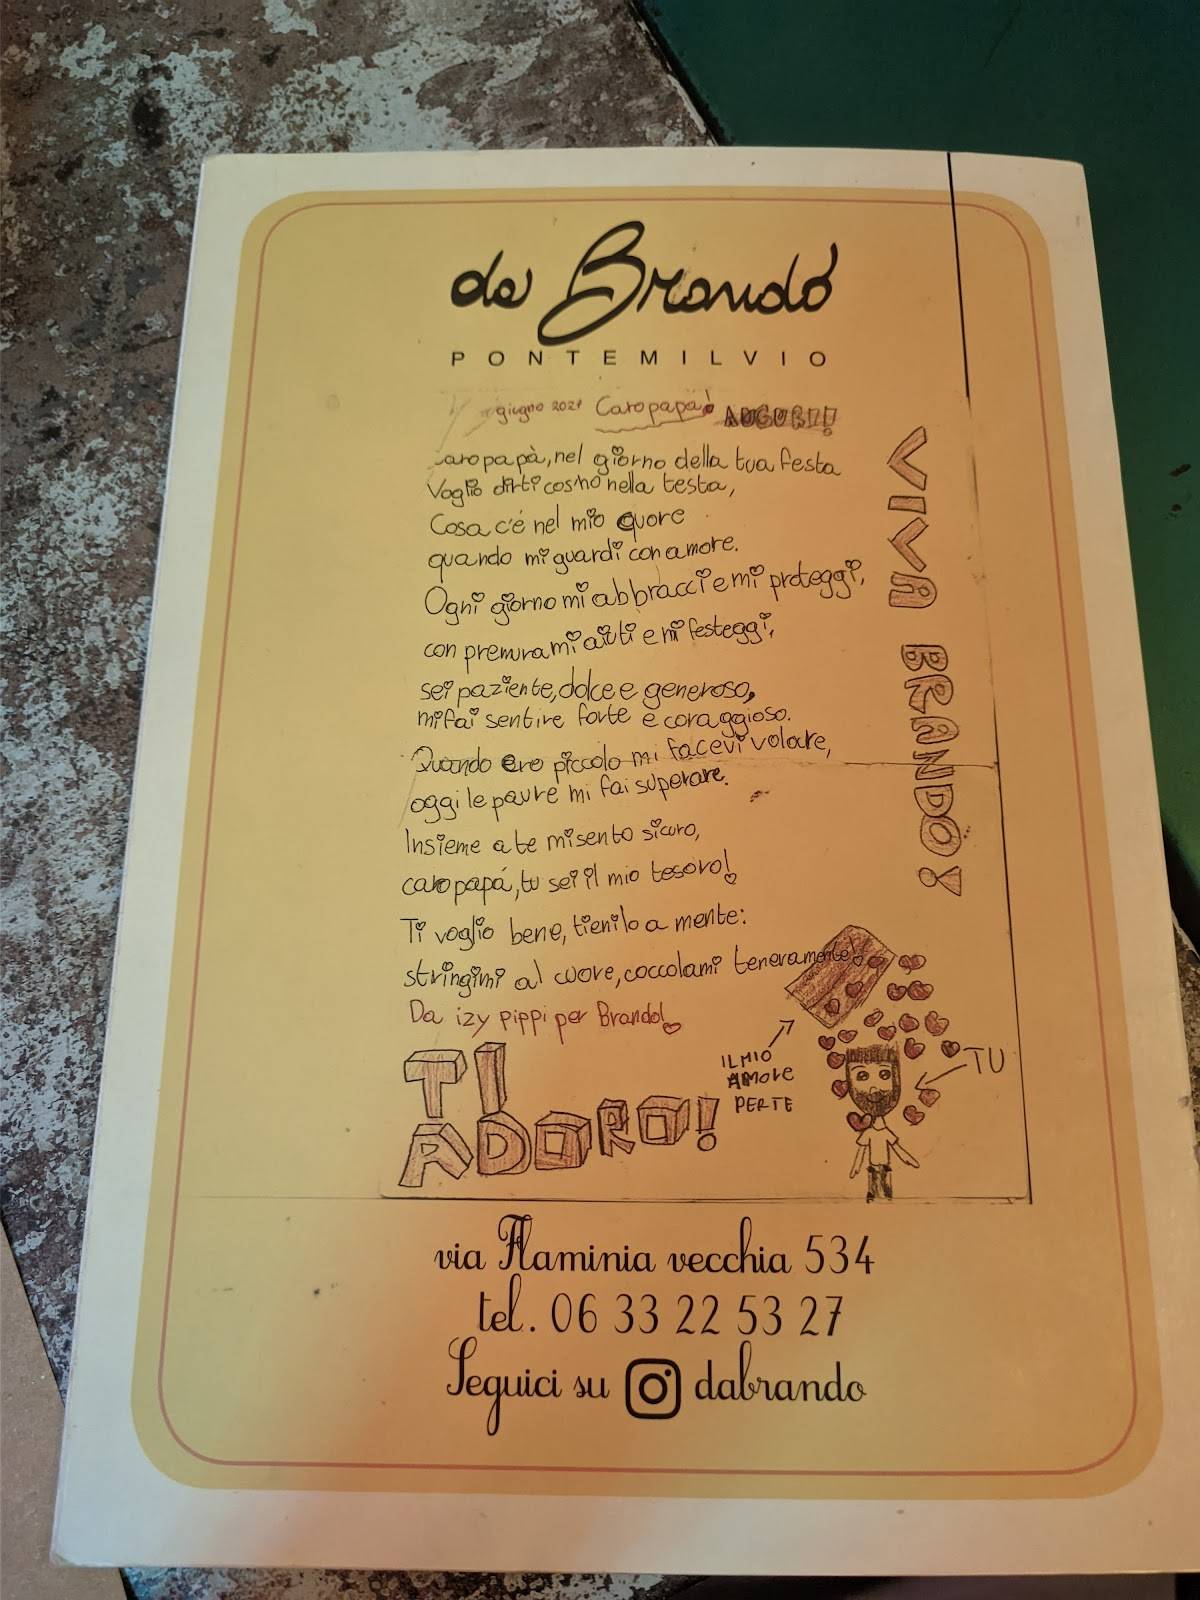 da Brandó
PONTEMILVIO
giugno 2021 Caro papà! AUGURI!
caro papà, nel giorno della tua festa
Voglio dirti cosho nella testa,
Cosa c'é nel mio quore
quando mi guardi con amore.
Ogni giorno mi abbracci e mi proteggi,
con premura mi aiuti e mi festeggi,
sei paziente, dolce e generoso,
mi fai sentire forte e coraggioso.
Quando ero piccolo mi facevi volare,
oggi le paure mi fai superare.
Insieme a te mi sento sicuro,
caro papá, tu sei il mio tesoro!
Ti voglio bene, tienilo a mente:
stringimi al cuore, coccolami teneramente!
Da izy pippi per Brando!
TI
ADORO!
IL MIO
AMORE
PER TE
TU
VIVA BRANDÓ!
via Flaminia vecchia 534
tel. 06 33 22 53 27
Seguici su dabrando